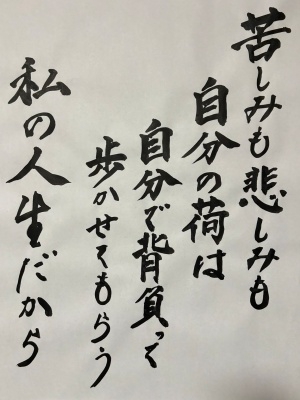 苦しみも悲しみも
自分の荷は
自分で背負って
歩かせてもらう
私の人生だから